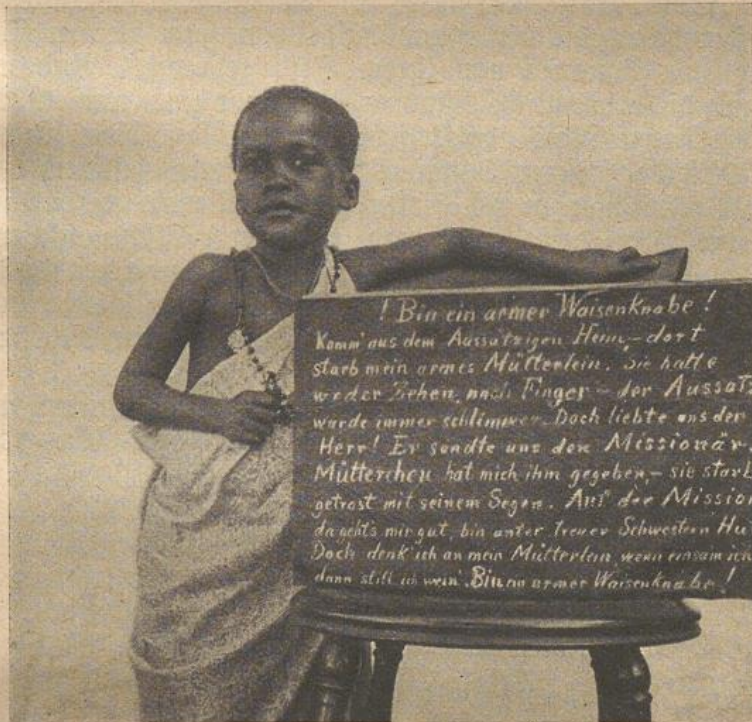 ! Bin ein armer Waisenknabe !
Komm' aus dem Aussätzigen Heim, - dort
starb mein armes Mütterlein. Sie hatte
weder Zehen, noch Finger - der Aussatz
wurde immer schlimmer. Doch liebte uns der
Herr! Er sandte uns den Missionär.
Mütterchen hat mich ihm gegeben, - sie starb
getrost mit seinem Segen. Auf der Mission
da gehts mir gut, bin unter treuer Schwestern Hu
Doch denk' ich an mein Mütterlein, wenn einsam ich
dann still ich wein'. Bin ein armer Waisenknabe !